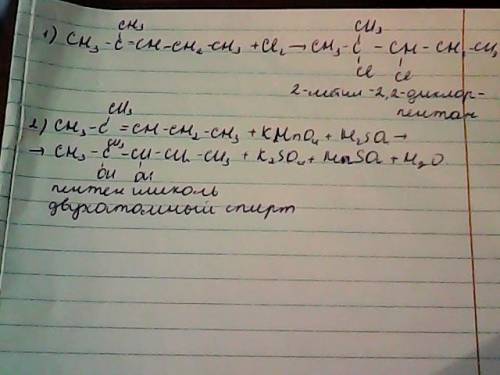 CH₃ CH₃
1) CH₃-C=CH-CH₂-CH₃ +Cl₂→CH₃-C-CH-CH₂-CH₃
Cl Cl
2-метил-2,2-дихлор-
пентан
CH₃
2) CH₃-C=CH-CH₂-CH₃ + KMnO₄ + H₂SO₄→
CH₃
→ CH₃-C-CH-CH₂-CH₃ + K₂SO₄ + MnSO₄ + H₂O
OH OH
пентен гликоль
двухатомный спирт